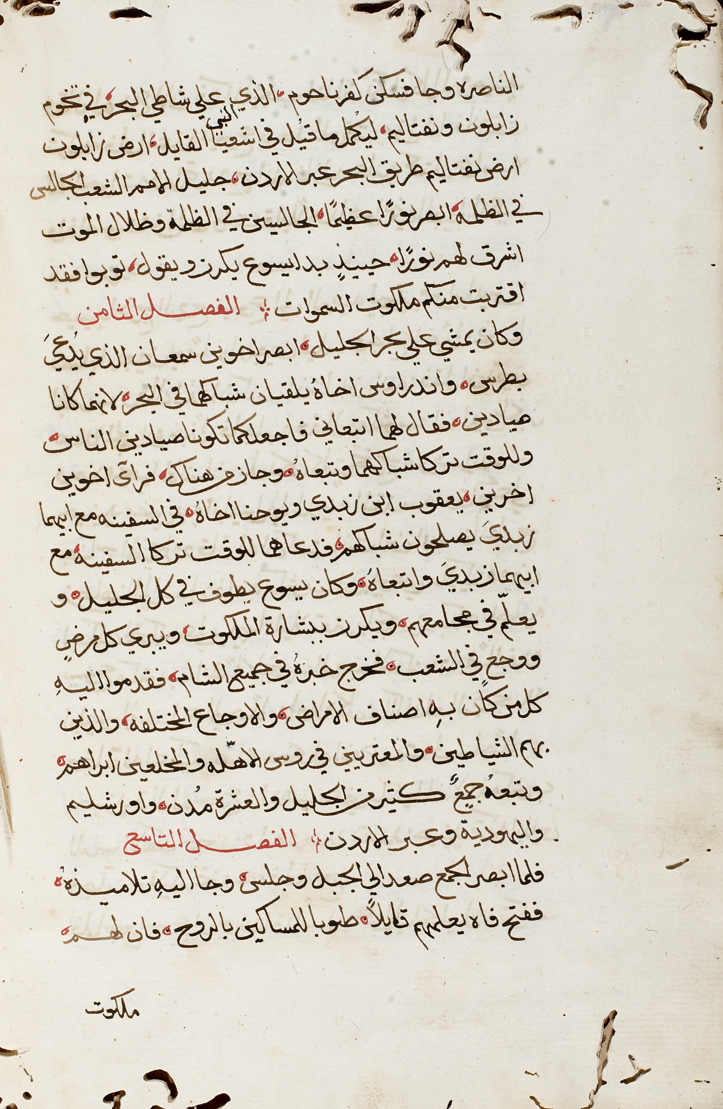 الناصره وجا فسكن كفرناحوم ۰ الذي علي شاطي البحر ۰ في تخوم
زابلون ونفتاليم ۰ ليكمل ما قيل في اشعيا النبي القايل ۰ ارض زابلون
ارض نفتاليم طريق البحر عبر الاردن ۰ جليل الامم الشعب الجالس
في الظلمه ۰ ابصر نورًا عظيمًا ۰ الجالسين في الظلمة وظلال الموت
اشرق لهم نورًا ۰ حينيذٍ بدا يسوع يكرز ويقول ۰ توبوا فقد
اقتربت منكم ملكوت السموات ⁘ الفصل الثامن
وكان يمشي علي بحر الجليل ۰ ابصر اخوين سمعان الذي يُدعيَ
بطرس ۰ واندراوس اخاهُ يلقيان شباكهما في البحر ۰ لانهما كانا
صيادين ۰ فقال لهما اتبعاني فاجعلكما تكونا صيادين الناس ۰
وللوقت تركا شباكهما وتبعاهُ ۰ وجاز من هناك ۰ فرآي اخوين
اخرين ۰ يعقوب ابن زبدي ويوحنا اخاهُ ۰ في السفينه مع ابيهما
زبديَ يصلحون شباكهم ۰ فدعاهما للوقت تركا السفينه ۰ مع
ابيهما زبديَ واتبعاهُ ۰ وكان يسوع يطوف في كل الجليل ۰ و
يعلّم في مجامعهم ۰ ويكرز ببشارة الملكوت ۰ ويبري كل مرضٍ
ووجع في الشعب ۰ فخرج خبرهُ في جميع الشام ۰ فقدموا اليهِ
كل من كان بهِ اصناف الامراض ۰ والاوجاع المختلفه ۰ والذين
بهم الشياطين ۰ والمعتريين في روس الاهلّه والمخلعين ابراهم ۰
وتبعهُ جمعٌ كثير من الجليل والعشرة مُدن ۰ واورشليم
واليهودية وعبر الاردن ⁘ الفصل التاسع
فلما ابصر الجمع صعد الي الجبل وجلس ۰ وجا اليهِ تلاميذهُ ۰
ففتح فاه يعلمهم قايلاً ۰ طوبا للمساكين بالروح ۰ فان لهم ۰
ملكوت